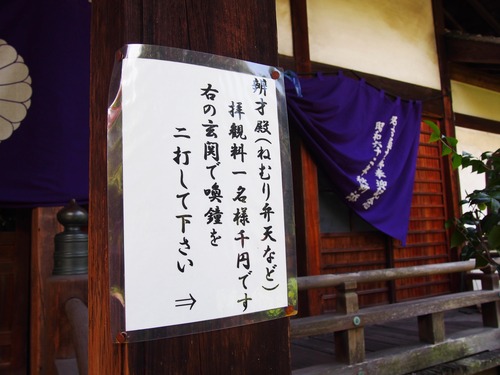 辨才殿(ねむり弁天など)
拝観料一名様千円です
右の玄関で喚鐘を
二打して下さい ⇒